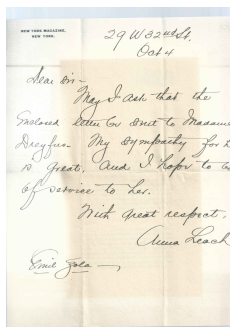 NEW YORK MAGAZINE,
NEW YORK.
29 W 32nd St.
Oct 4
Dear Sir –
May I ask that the
enclosed letter be sent to Madame
Dreyfus. My sympathy for h
is great. And I hope to be
of service to her.
With great respect,
Anna Leach
Emil Zola